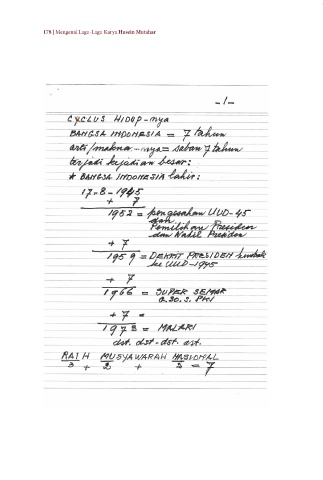 178 | Mengenal Lagu-Lagu Karya Husein Mutahar
-1-
CYCLUS HIDUP-nya
BANGSA INDONESIA = 7 tahun
arti/makna-nya = saban 7 tahun
terjadi kejadian besar:
* BANGSA INDONESIA lahir:
17-8-1945
+ 7
1952 = pengesahan UUD-45
dan
Pemilihan Presiden
dan Wakil Presiden
+ 7
1959 = DEKRIT PRESIDEN kembali
ke UUD-1945
+ 7
1966 = SUPER SEMAR
G.30.S. PKI
+ 7 =
1973 = MALARI
dst. dst-dst. dst.
RAT H MUSYAWARAH NASIONAL
3 + 2 + 2 = 7